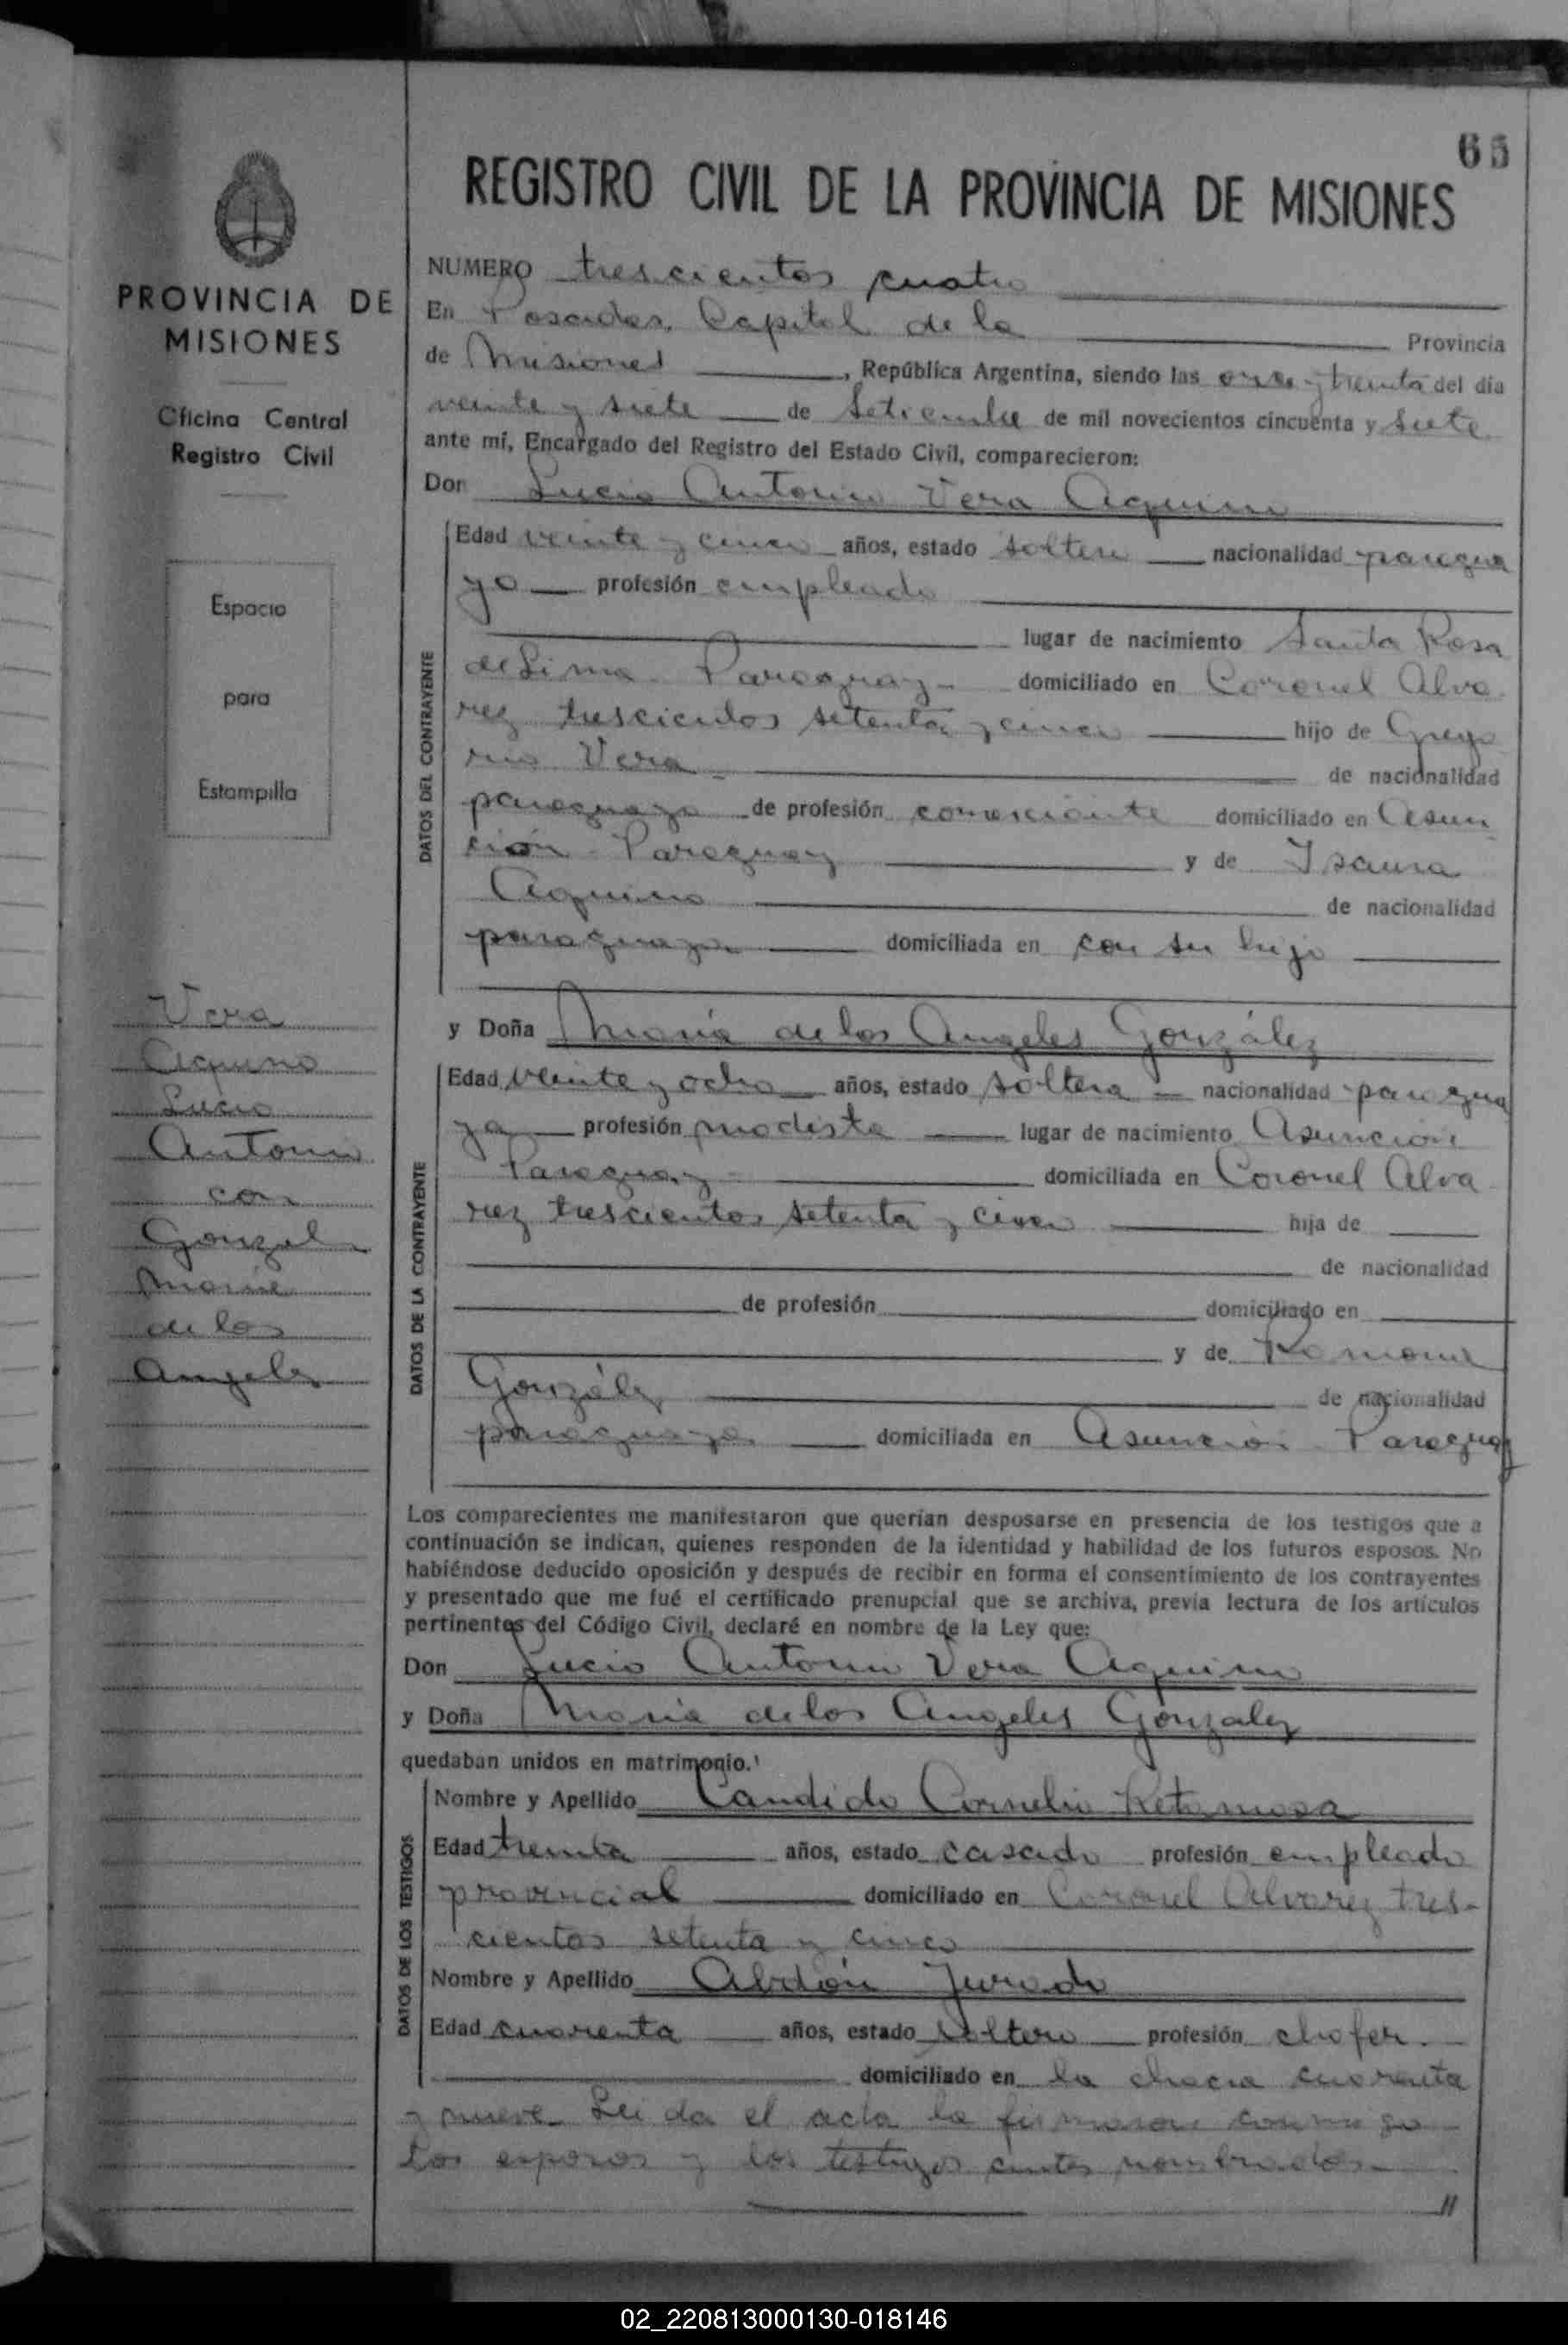 65
REGISTRO CIVIL DE LA PROVINCIA DE MISIONES
PROVINCIA DE
MISIONES
Oficina Central
Registro Civil
Espacio
para
Estampilla
Vera
Aquino
Lucio
Antonio
con
Gonzalez
Maria
de los
Angeles
NUMERO trescientos cuatro
En Posadas, Capital de la Provincia
de Misiones, República Argentina, siendo las once y treinta del día
veinte y siete de Setiembre de mil novecientos cincuenta y siete
ante mí, Encargado del Registro del Estado Civil, comparecieron:
Don Lucio Antonio Vera Aquino
DATOS DEL CONTRAYENTE
Edad veinte y cinco años, estado soltero nacionalidad paragua
yo profesión empleado
lugar de nacimiento Santa Rosa
de Lima - Paraguay - domiciliado en Coronel Alva
rez trescientos setenta y cinco hijo de Grego
rio Vera - de nacionalidad
paraguaya de profesión comerciante domiciliado en Asun
ción - Paraguay y de Isaura
Aquino de nacionalidad
paraguaya domiciliada en con su hijo
y Doña María de los Angeles González
DATOS DE LA CONTRAYENTE
Edad veinte y ocho años, estado soltera nacionalidad paragua
ya profesión modista lugar de nacimiento Asunción
Paraguay domiciliada en Coronel Alva
rez trescientos setenta y cinco hija de
de nacionalidad
de profesión domiciliado en
y de Ramona
González de nacionalidad
paraguaya domiciliada en Asunción - Paraguay
Los comparecientes me manifestaron que querían desposarse en presencia de los testigos que a
continuación se indican, quienes responden de la identidad y habilidad de los futuros esposos. No
habiéndose deducido oposición y después de recibir en forma el consentimiento de los contrayentes
y presentado que me fué el certificado prenupcial que se archiva, previa lectura de los artículos
pertinentes del Código Civil, declaré en nombre de la Ley que:
Don Lucio Antonio Vera Aquino
y Doña María de los Angeles González
quedaban unidos en matrimonio.
DATOS DE LOS TESTIGOS
Nombre y Apellido Candido Cornelio Retamosa
Edad treinta años, estado casado profesión empleado
provincial domiciliado en Coronel Alvarez tres-
cientos setenta y cinco
Nombre y Apellido Abdón Jurado
Edad cuarenta años, estado soltero profesión chofer.
domiciliado en la chacra cuarenta
y nueve. Leida el acta la firmaron conmigo
los esposos y los testigos antes nombrados.-
//
02_220813000130-018146